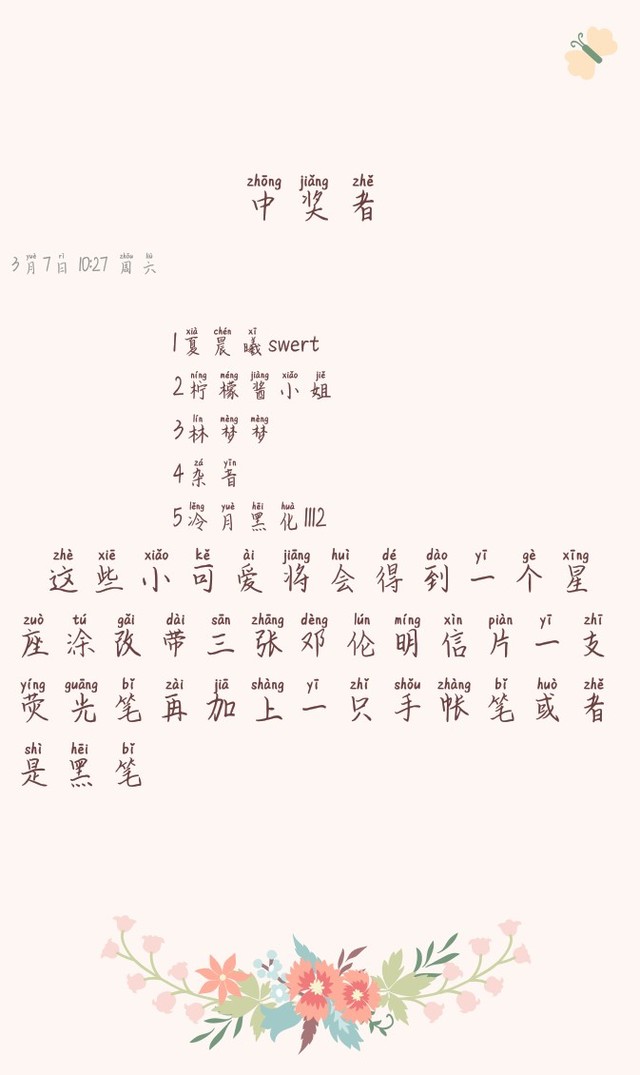 zhōng jiǎng zhě
中奖者
yuè rì zhōu liù
3月7日 10:27 周六
xià chén xī
1夏晨曦swert
níng méng jiàng xiǎo jiě
2柠檬酱小姐
lín mèng mèng
3林梦梦
zá yīn
4杂音
lěng yuè hēi huà
5冷月黑化1112
zhè xiē xiǎo kě ài jiāng huì dé dào yī gè xīng
这些小可爱将会得到一个星
zuò tú gǎi dài sān zhāng dèng lún míng xìn piàn yī zhī
座涂改带三张邓伦明信片一支
yíng guāng bǐ zài jiā shàng yī zhǐ shǒu zhàng bǐ huò zhě
荧光笔再加上一只手帐笔或者
shì hēi bǐ
是黑笔